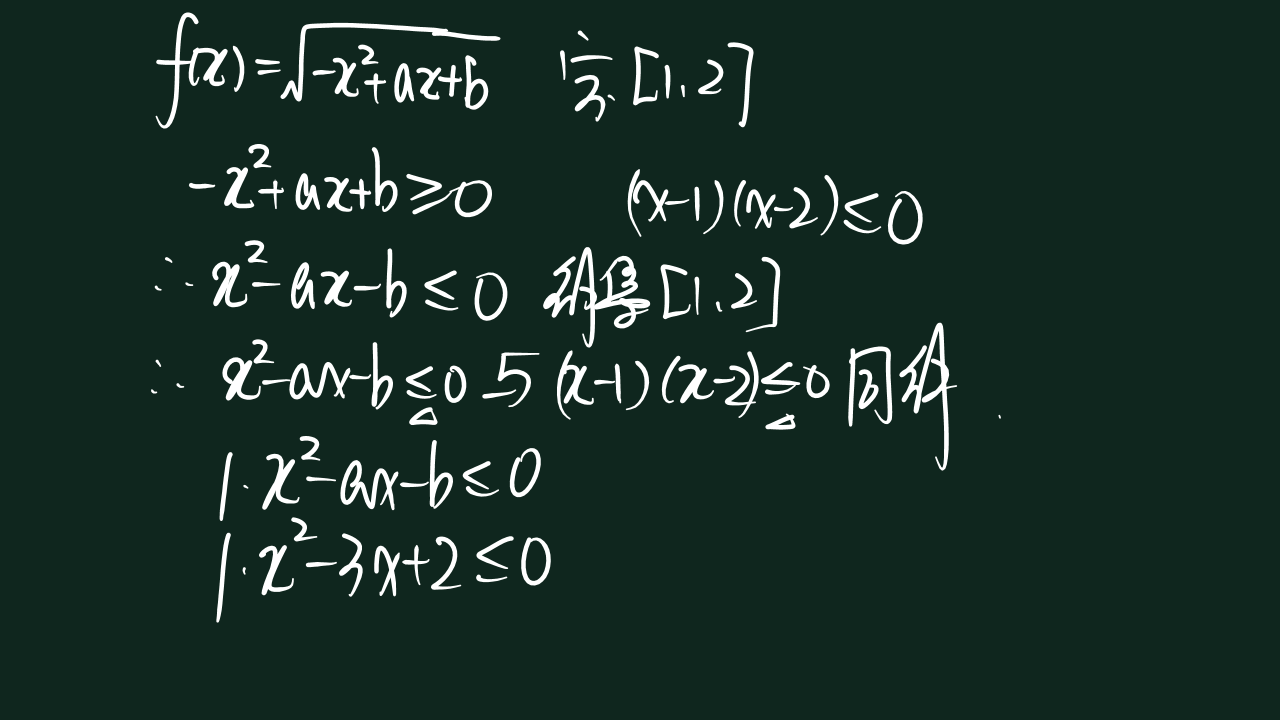 f(x)=√(-x²+ax+b) 定 [1,2]
-x²+ax+b≥0 (x-1)(x-2)≤0
∴ x²-ax-b≤0 解集[1,2]
∴ x²-ax-b≤0与(x-1)(x-2)≤0同解
1·x²-ax-b≤0
1·x²-3x+2≤0